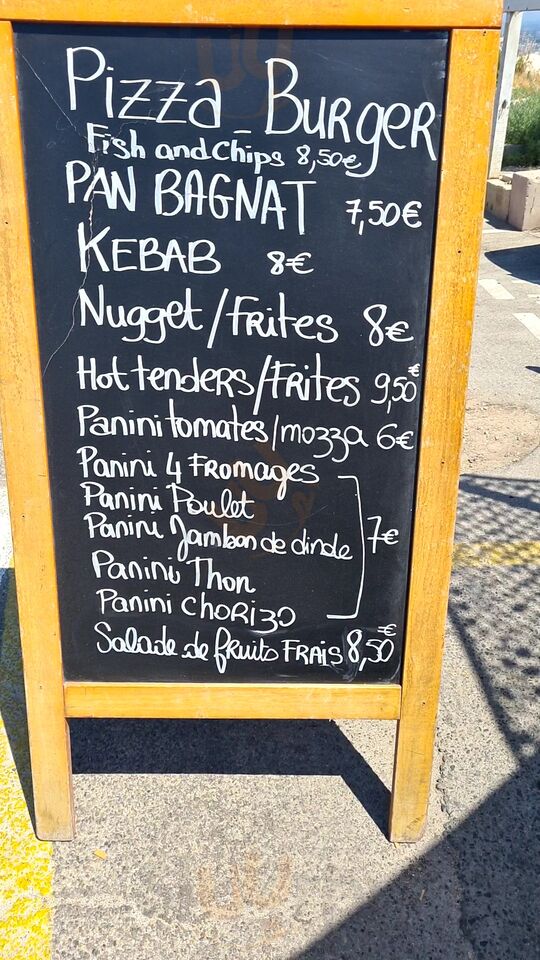 Pizza - Burger
Fish and Chips 8,50€
PAN BAGNAT 7,50€
KEBAB 8€
Nugget/FRites 8€
Hot tenders/FRites 9,50€
Panini tomates/mozza 6€
Panini 4 FRomages
Panini Poulet
Panini Jambon de dinde 7€
Panini Thon
Panini CHORIZO
Salade de fRuits FRAIS 8,50€